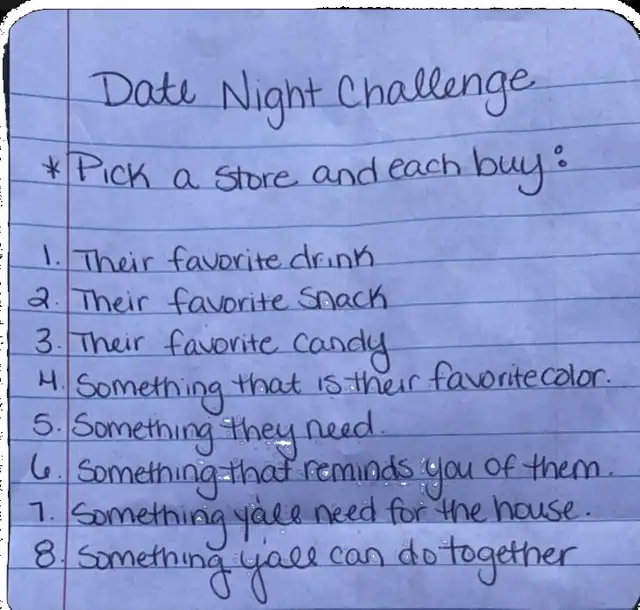 Date Night Challenge
* Pick a store and each buy:
1. Their favorite drink
2. Their favorite snack
3. Their favorite candy
4. Something that is their favorite color.
5. Something they need.
6. Something that reminds you of them.
7. Something yall need for the house.
8. Something yall can do together